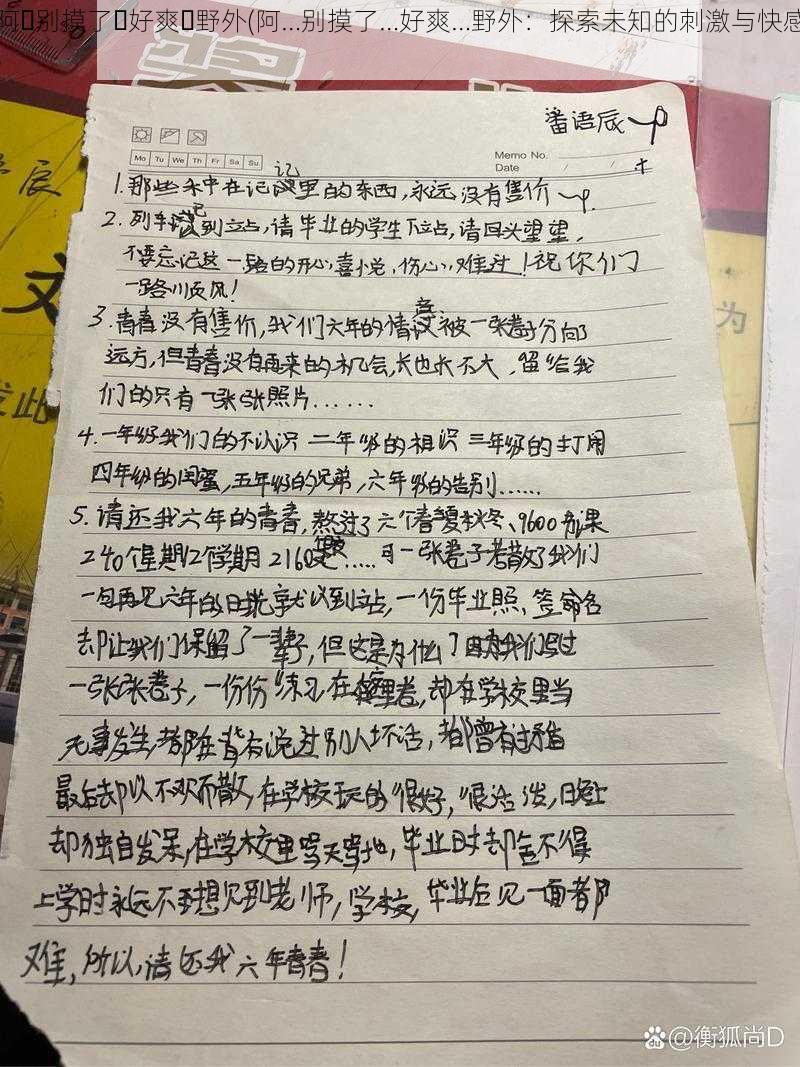 阿▯别摸了▯好爽▯野外(阿...别摸了...好爽...野外：探索未知的刺激与快感
番语辰
Memo No.
Mo Tu We Th Fr Sa Su
Date / /
记
1.那些未中在记里的东西,永远没有售价
2.列车已到立占,请毕业的学生下立占,请回头望望,
不要忘记这一路的开心,喜悦,伤心,难过!祝你们
一路川页风!
3.青春没有售价,我们六年的情谊被一张卷子分向
远方,但青春没有再来的机会,长也长不大,留给我
们的只有一张张照片......
4.一年级我们的不认识 二年级的相识 三年级的打闹
四年级的闺蜜,五年级的兄弟,六年级的告别......
5.请还我六年的青春,熬过了六个春夏秋冬、9600节课
240个星期12个学期2160.....可一张卷子若散了我们
一句再见六年的时光就以到立占,一份毕业照、签命名
却让我们保留了一辈子,但这是为什么?因为我们写过
一张张卷子,一份份练习,在里卷,却在学校里当
无事发生,都在背后说过别人坏话,都曾有过矛盾
最后却以不欢而散,在学校玩的很好,很活泼,晚上
却独自发呆,在学校里骂天骂地,毕业时却舍不得
上学时永远不想见到老师,学校,毕业后见一面都
难,所以,请还我六年青春!
文
发此
为
辰
Baidu @衡狐尚D